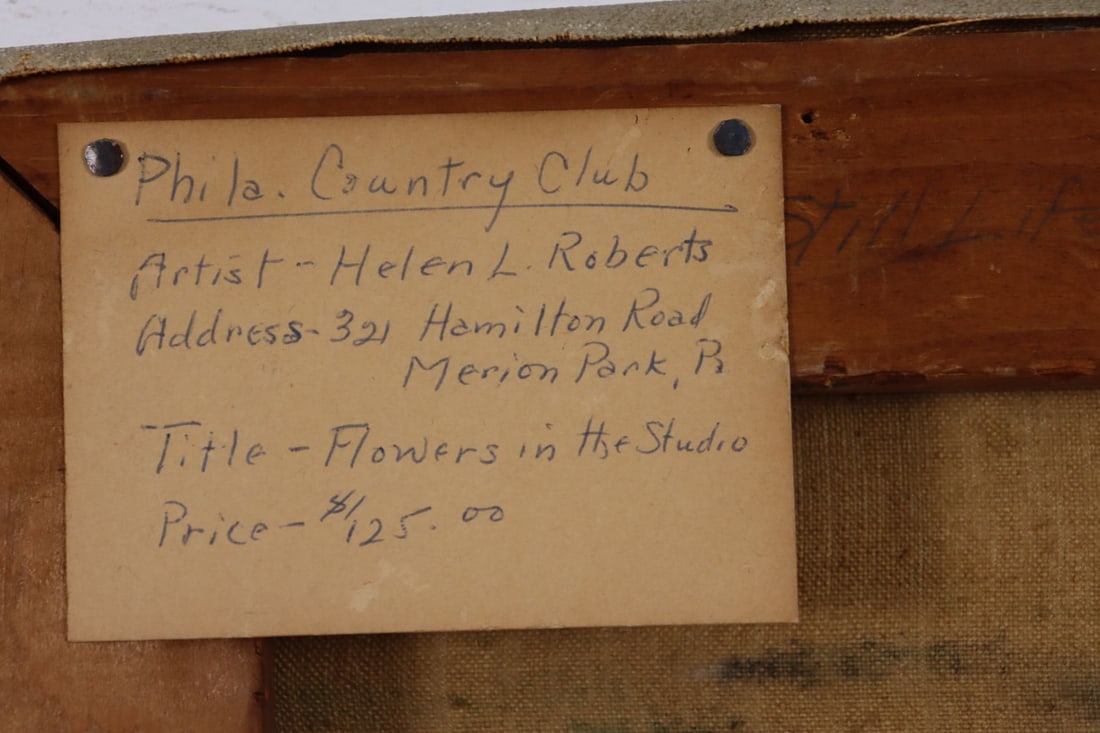 Phila. Country Club
Artist - Helen L. Roberts
Address - 321 Hamilton Road
Merion Park, Pa
Title - Flowers in the Studio
Price - $125.00
Still Life